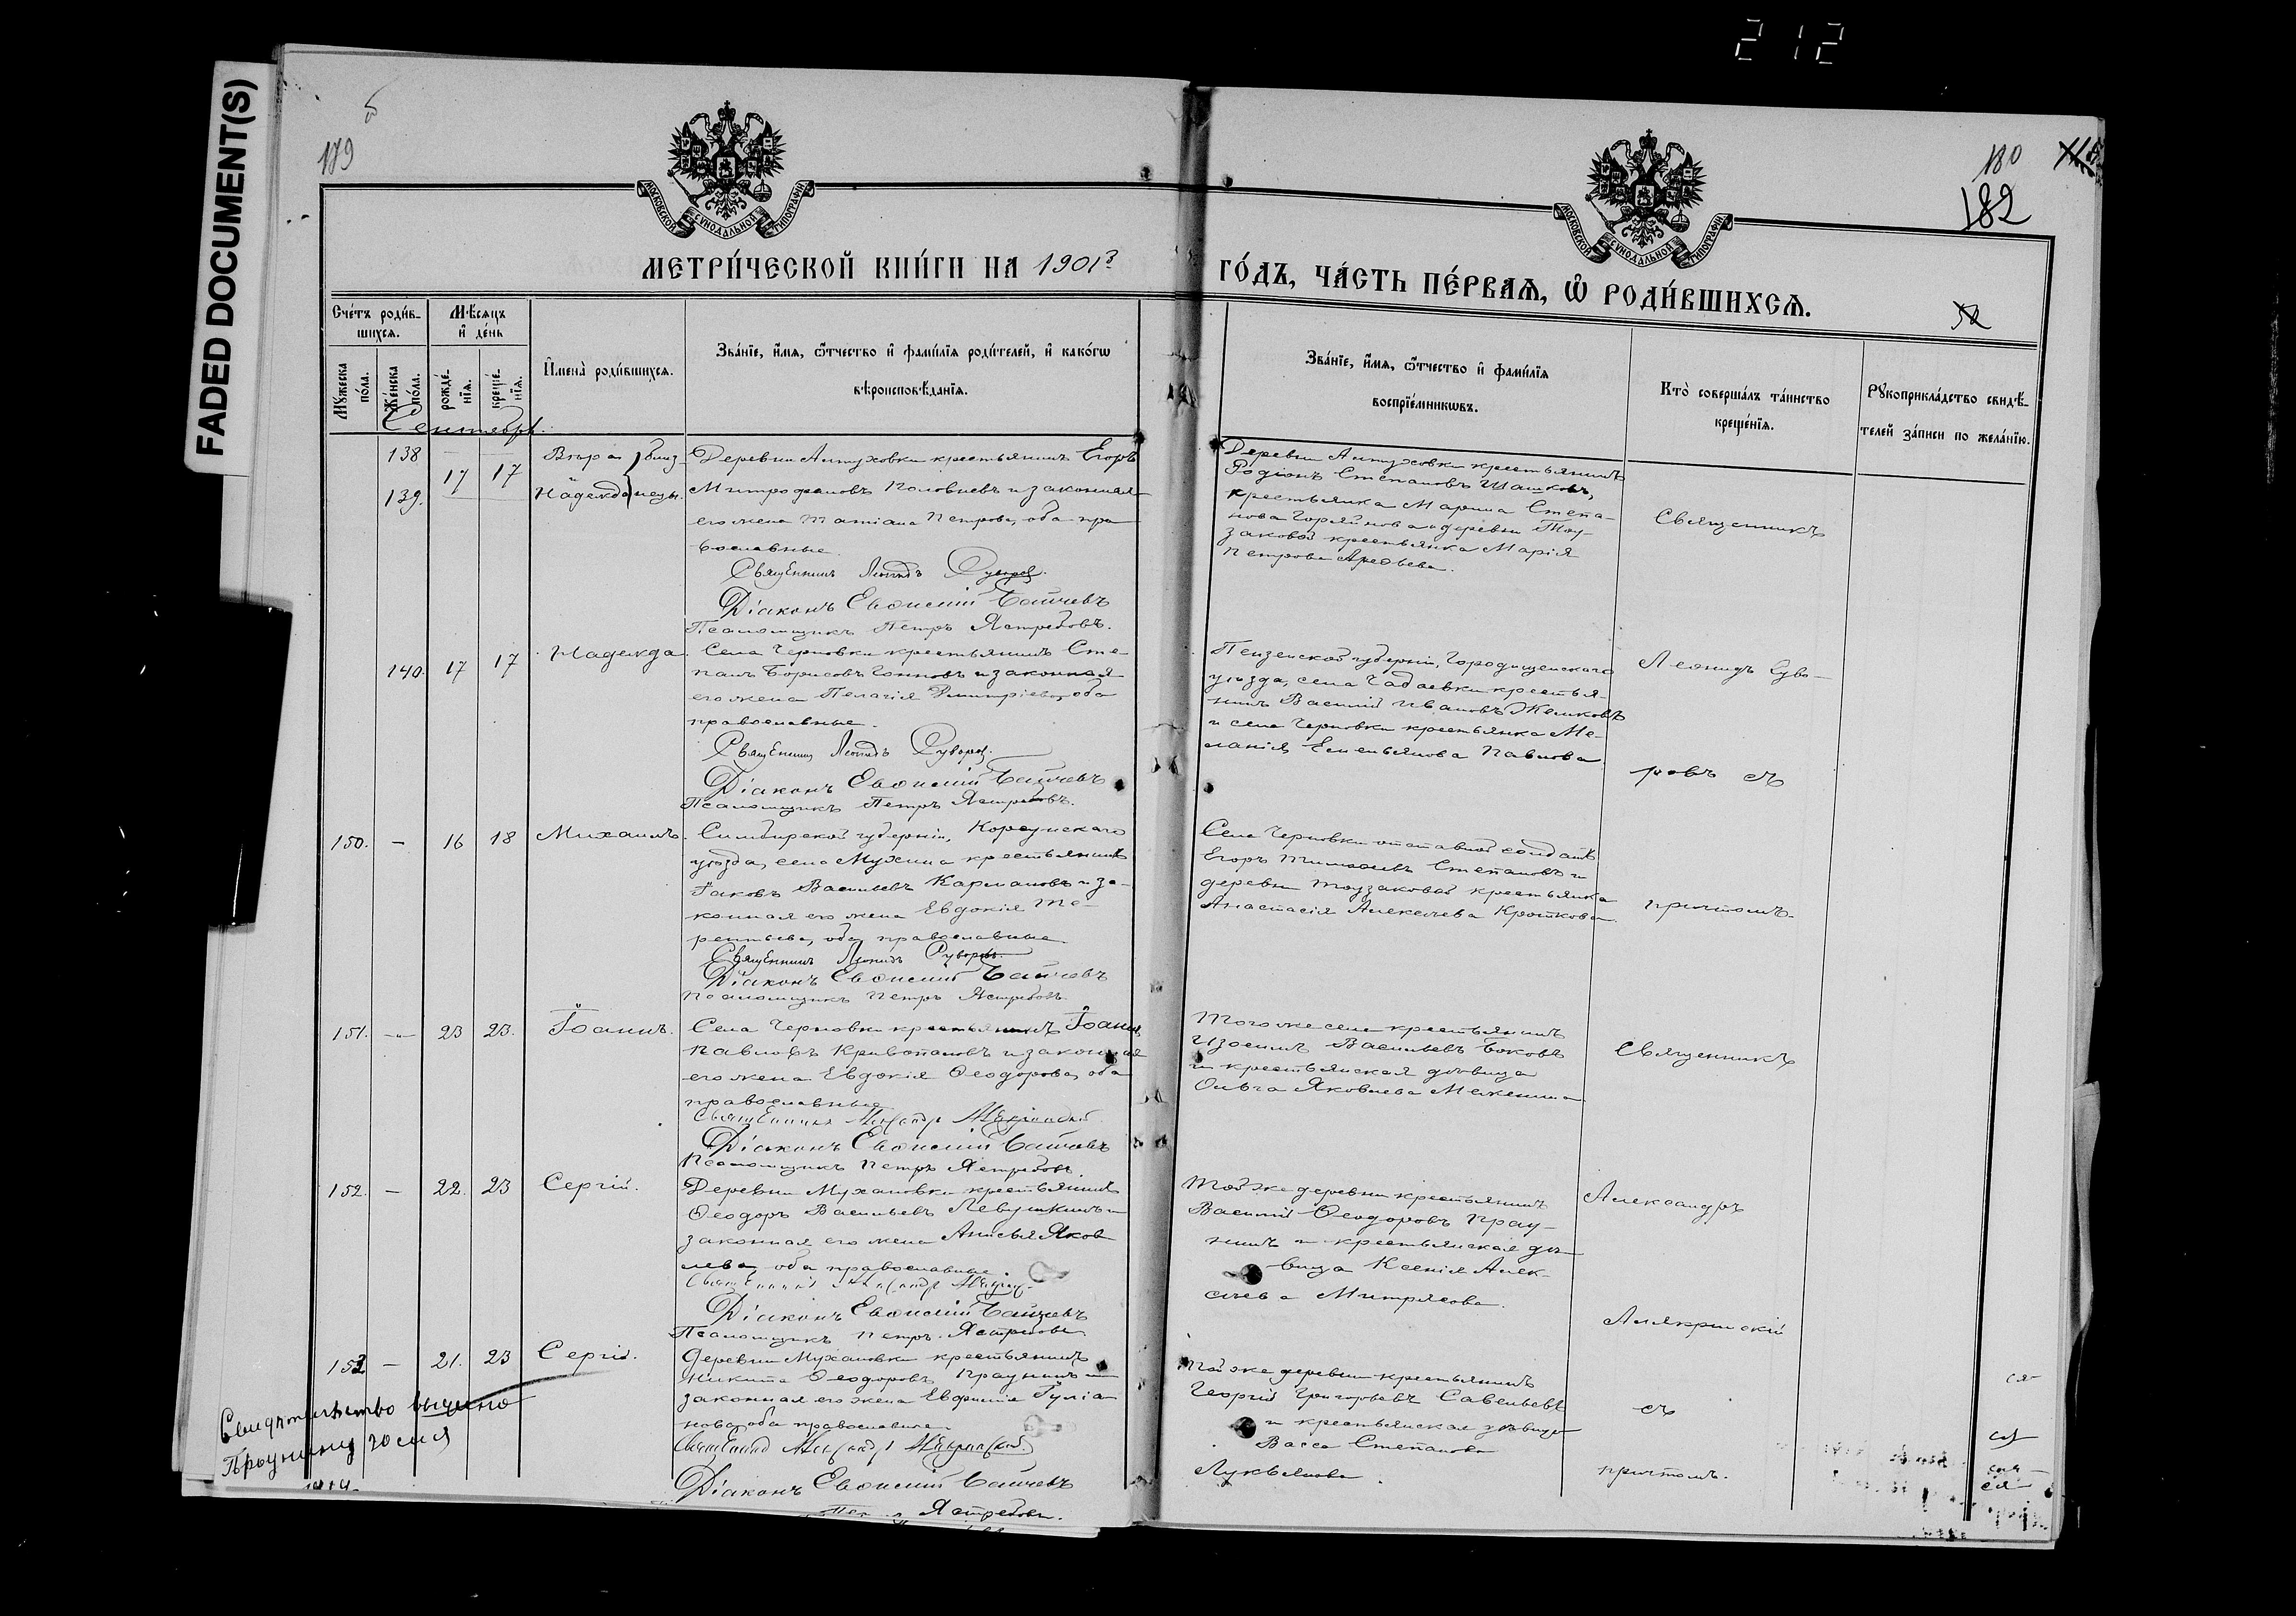 212
FADED DOCUMENT(S)
179
180
182
МОСКОВСКОЙ СѴНОДАЛЬНОЙ ТИПОГРАФІИ
МОСКОВСКОЙ СѴНОДАЛЬНОЙ ТИПОГРАФІИ
МЕТРИ́ЧЕСКОЙ КНИ́ГИ НА 1901й
ГО́ДЪ, ЧА́СТЬ ПЕ́РВАѦ, Ѽ РОДИ́ВШИХСѦ.
Сче́тъ роди́в-
шихся.
Мѣ́сяцъ
и҆ де́нь
Мꙋ́жеска по́ла.
Же́нска по́ла.
рожде́-
нїя.
креще́-
нїя.
И҆мена̀ роди́вшихся.
Зва́нїе, и҆́мя, ѻ҆́тчество и҆ фами́лїя роди́телей, и҆ како́гѡ
вѣроисповѣ́данїя.
Зва́нїе, и҆́мя, ѻ҆́тчество и҆ фами́лїя
воспрїе́мникѡвъ.
Кто̀ соверша́лъ та́инство
креще́нїя.
Рꙋкоприкла́дство свидѣ́-
телей за́писи по жела́нїю.
Сентябрь.
138
139.
17 17
Вѣра } близ-
Надежда } нецы.
Деревни Алтуховки крестьянинъ Егоръ
Митрофановъ Половневъ и законная
его жена Татіана Петрова, оба пра
вославные.
Священникъ Леонидъ Суворовъ.
Діаконъ Евѳимій Байчевъ
Псаломщикъ Петръ Ястребовъ.
Деревни Алтуховки крестьянинъ
Родіонъ Степановъ Шашковъ,
крестьянка Марина Степа-
нова Горяйнова и деревни Тоу-
заковой крестьянка Марія
Петрова Арефьева.
Священникъ
140. 17 17 Надежда
Села Черновки крестьянинъ Сте-
панъ Борисовъ и законная
его жена Пелагія Димитріева, оба
православные.
Священникъ Леонидъ Суворовъ.
Діаконъ Евѳимій Байчевъ
Псаломщикъ Петръ Ястребовъ.
Пензенской губерніи, Городищенскаго
уѣзда, села Чадаевки крестья-
нинъ Василій Ивановъ
и села Черновки крестьянка Ме-
ланія Емельянова Павлова
Леонидъ Суво-
ровъ съ
150. — 16 18 Михаилъ.
Симбирской губерніи, Корсунскаго
уѣзда, села Мухина крестьянинъ
Іаковъ Васильевъ Кармановъ и за-
конная его жена Евдокія Те-
рентьева, оба православные.
Священникъ Леонидъ Суворовъ.
Діаконъ Евѳимій Байчевъ
Псаломщикъ Петръ Ястребовъ.
Села Черновки отставной солдатъ
Егоръ Тимоѳеевъ Степановъ и
деревни Тоузаковой крестьянка
Анастасія Алексѣева Кроткова.
причтомъ.
151. — 23 23. Іоаннъ.
Села Черновки крестьянинъ Іоаннъ
Павловъ Кривопаловъ и законная
его жена Евдокія Ѳеодорова, оба
православные
Священникъ Александръ Алякринскій
Діаконъ Евѳимій Байчевъ
Псаломщикъ Петръ Ястребовъ.
Того же села крестьянинъ
Изосимъ Васильевъ Боковъ
и крестьянская дѣвица
Ольга Яковлева Мекешина
Священникъ
152. — 22. 23 Сергій.
Деревни Мухановки крестьянинъ
Ѳеодоръ Васильевъ Левушкинъ и
законная его жена Анисья Яков
лева, оба православные.
Священникъ Александръ Алякринскій
Діаконъ Евѳимій Байчевъ
Псаломщикъ Петръ Ястребовъ
Той же деревни крестьянинъ
Василій Ѳеодоровъ Прау-
нинъ и крестьянская дѣ-
вица Ксенія Алек-
сѣева Митрясова.
Александръ
Алякринскій
153 — 21. 23 Сергій.
Деревни Мухановки крестьянинъ
Никита Ѳеодоровъ Праунинъ и
законная его жена Евфимія Іуліа
нова, оба православные
Священникъ Александръ Алякринскій.
Діаконъ Евѳимій Байчевъ
Ястребовъ.
Той же деревни крестьянинъ
Георгій Григорьевъ Савельевъ
и крестьянская дѣвица
Васса Степанова
Лукьянова.
съ
причтомъ.
Свидѣтельство выдано
Праунину